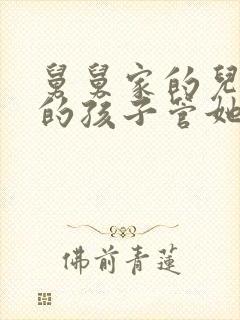 舅舅家的兒
的孩子管她
佛前青蓮